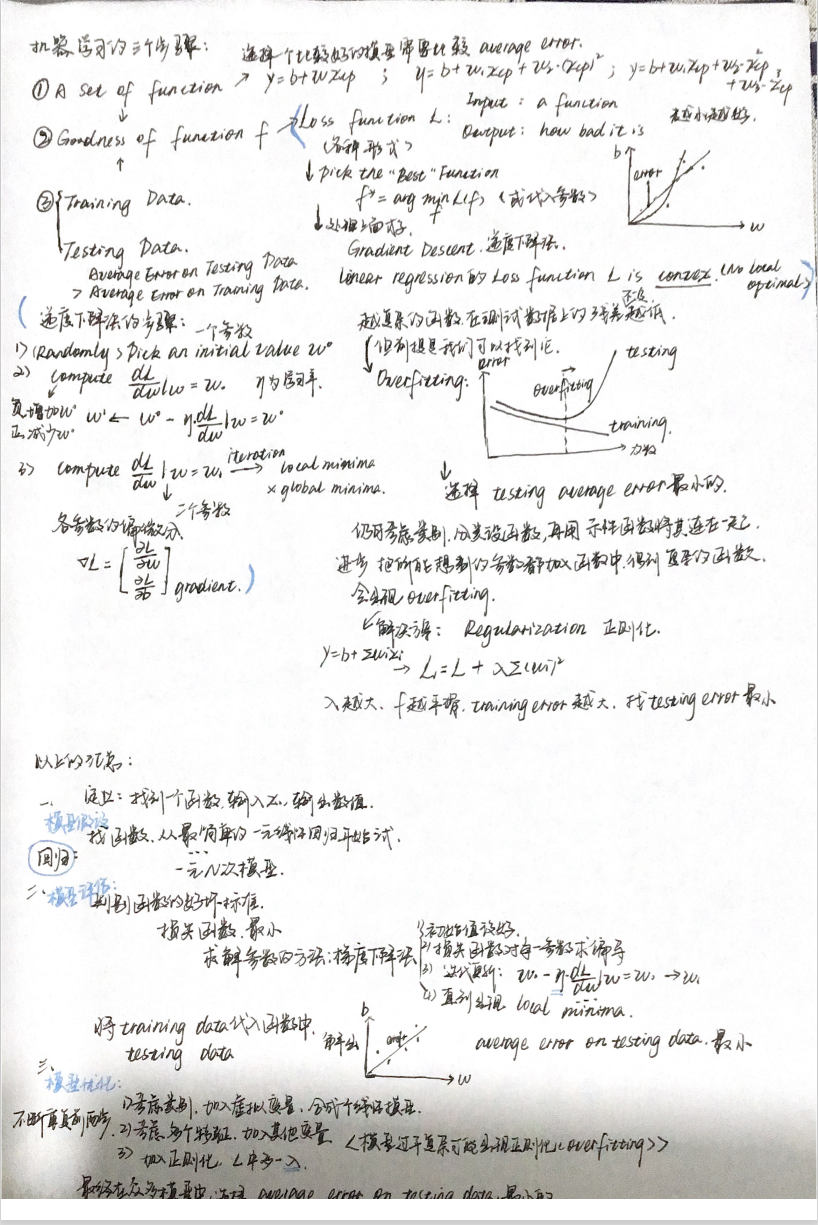 机器学习的三个步骤：
选择一个比较好的模型需要比较 average error.
① A set of function → y=b+w·xcp ； y=b+w₁xcp+w₂·(xcp)² ； y=b+w₁xcp+w₂·x²cp
+w₃·x³cp
② Goodness of function f → Loss function L： Input： a function
(各种形式) Output： how bad it is 越小越好.
↓ pick the "Best" Function
f* = arg min L(f) (或代入参数)
f
b error w
③ { Training Data.
Testing Data.
Average Error on Testing Data
> Average Error on Training Data.
Gradient Descent. 递度下降法.
Linear regression的 Loss function L is convex. (No local
optimal)
(递度下降法的步骤： 一个参数
1) (Randomly) Pick an initial value w⁰
2) compute dL/dw|w=w₀ η为学习率.
负增加w⁰ w¹ ← w⁰ - η·dL/dw|w=w⁰
正减少w⁰
3) compute dL/dw|w=w₁ iteration → local minima
× global minima.
↓ 二个参数
各参数的偏微分.
∇L = [∂L/∂w
∂L/∂b] gradient.)
越复杂的函数.在测试数据上的误差越低.
但前提是我们可以找到它.
Overfitting：
error overfitting testing
training.
↓
选择 testing average error 最小的.
仍可考虑类别，分类设函数，再用示性函数将其连在一起.
进步 把所能想到的参数都加入函数中.得到复杂的函数.
会出现 overfitting.
↙解决方案： Regularization 正则化.
y=b+Σwixi
→ L₁=L + λΣ(wi)²
λ越大、f越平滑. training error 越大. 找 testing error 最小
以上的汇总：
一、 定义：找到一个函数.输入x.，输出数值.
模型假设
找函数.从最简单的一元线性回归开始试.
回归：
一元N次模型.
二、模型评估：
判别函数的好坏-标准.
损失函数.最小
求解参数的方法：梯度下降法
1) 初始值设好.
2) 损失函数对每一参数求偏导
3) 迭代更新： w₀ - η·dL/dw|w=w₀ → w₁
4) 直到出现 local minima.
将 training data代入函数中.
testing data
解出 b error w
average error on testing data. 最小
三、
模型优化：
不断重复前两步.
1) 考虑类别. 加入虚拟变量，合成个线性模型.
2) 考虑多个特征. 加入其他变量 <模型过于复杂可能出现正则化(overfitting)>
3) 加入正则化. L中多一λ.
最终在众多模型中,选择 average error on testing data 最小的